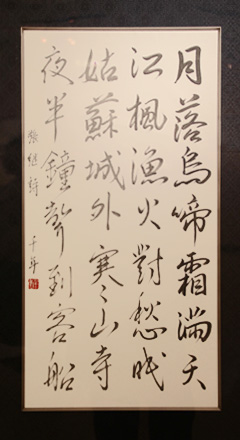 月落烏啼霜滿天
江楓漁火對愁眠
姑蘇城外寒山寺
夜半鐘聲到客船
張继詩